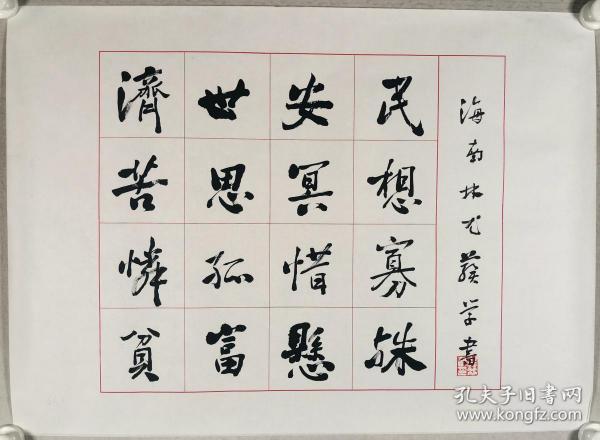 濟世安民
苦思冥想
憐孤惜寡
貧富懸殊
海南林尤学書
孔夫子旧书网
www.kongfz.com